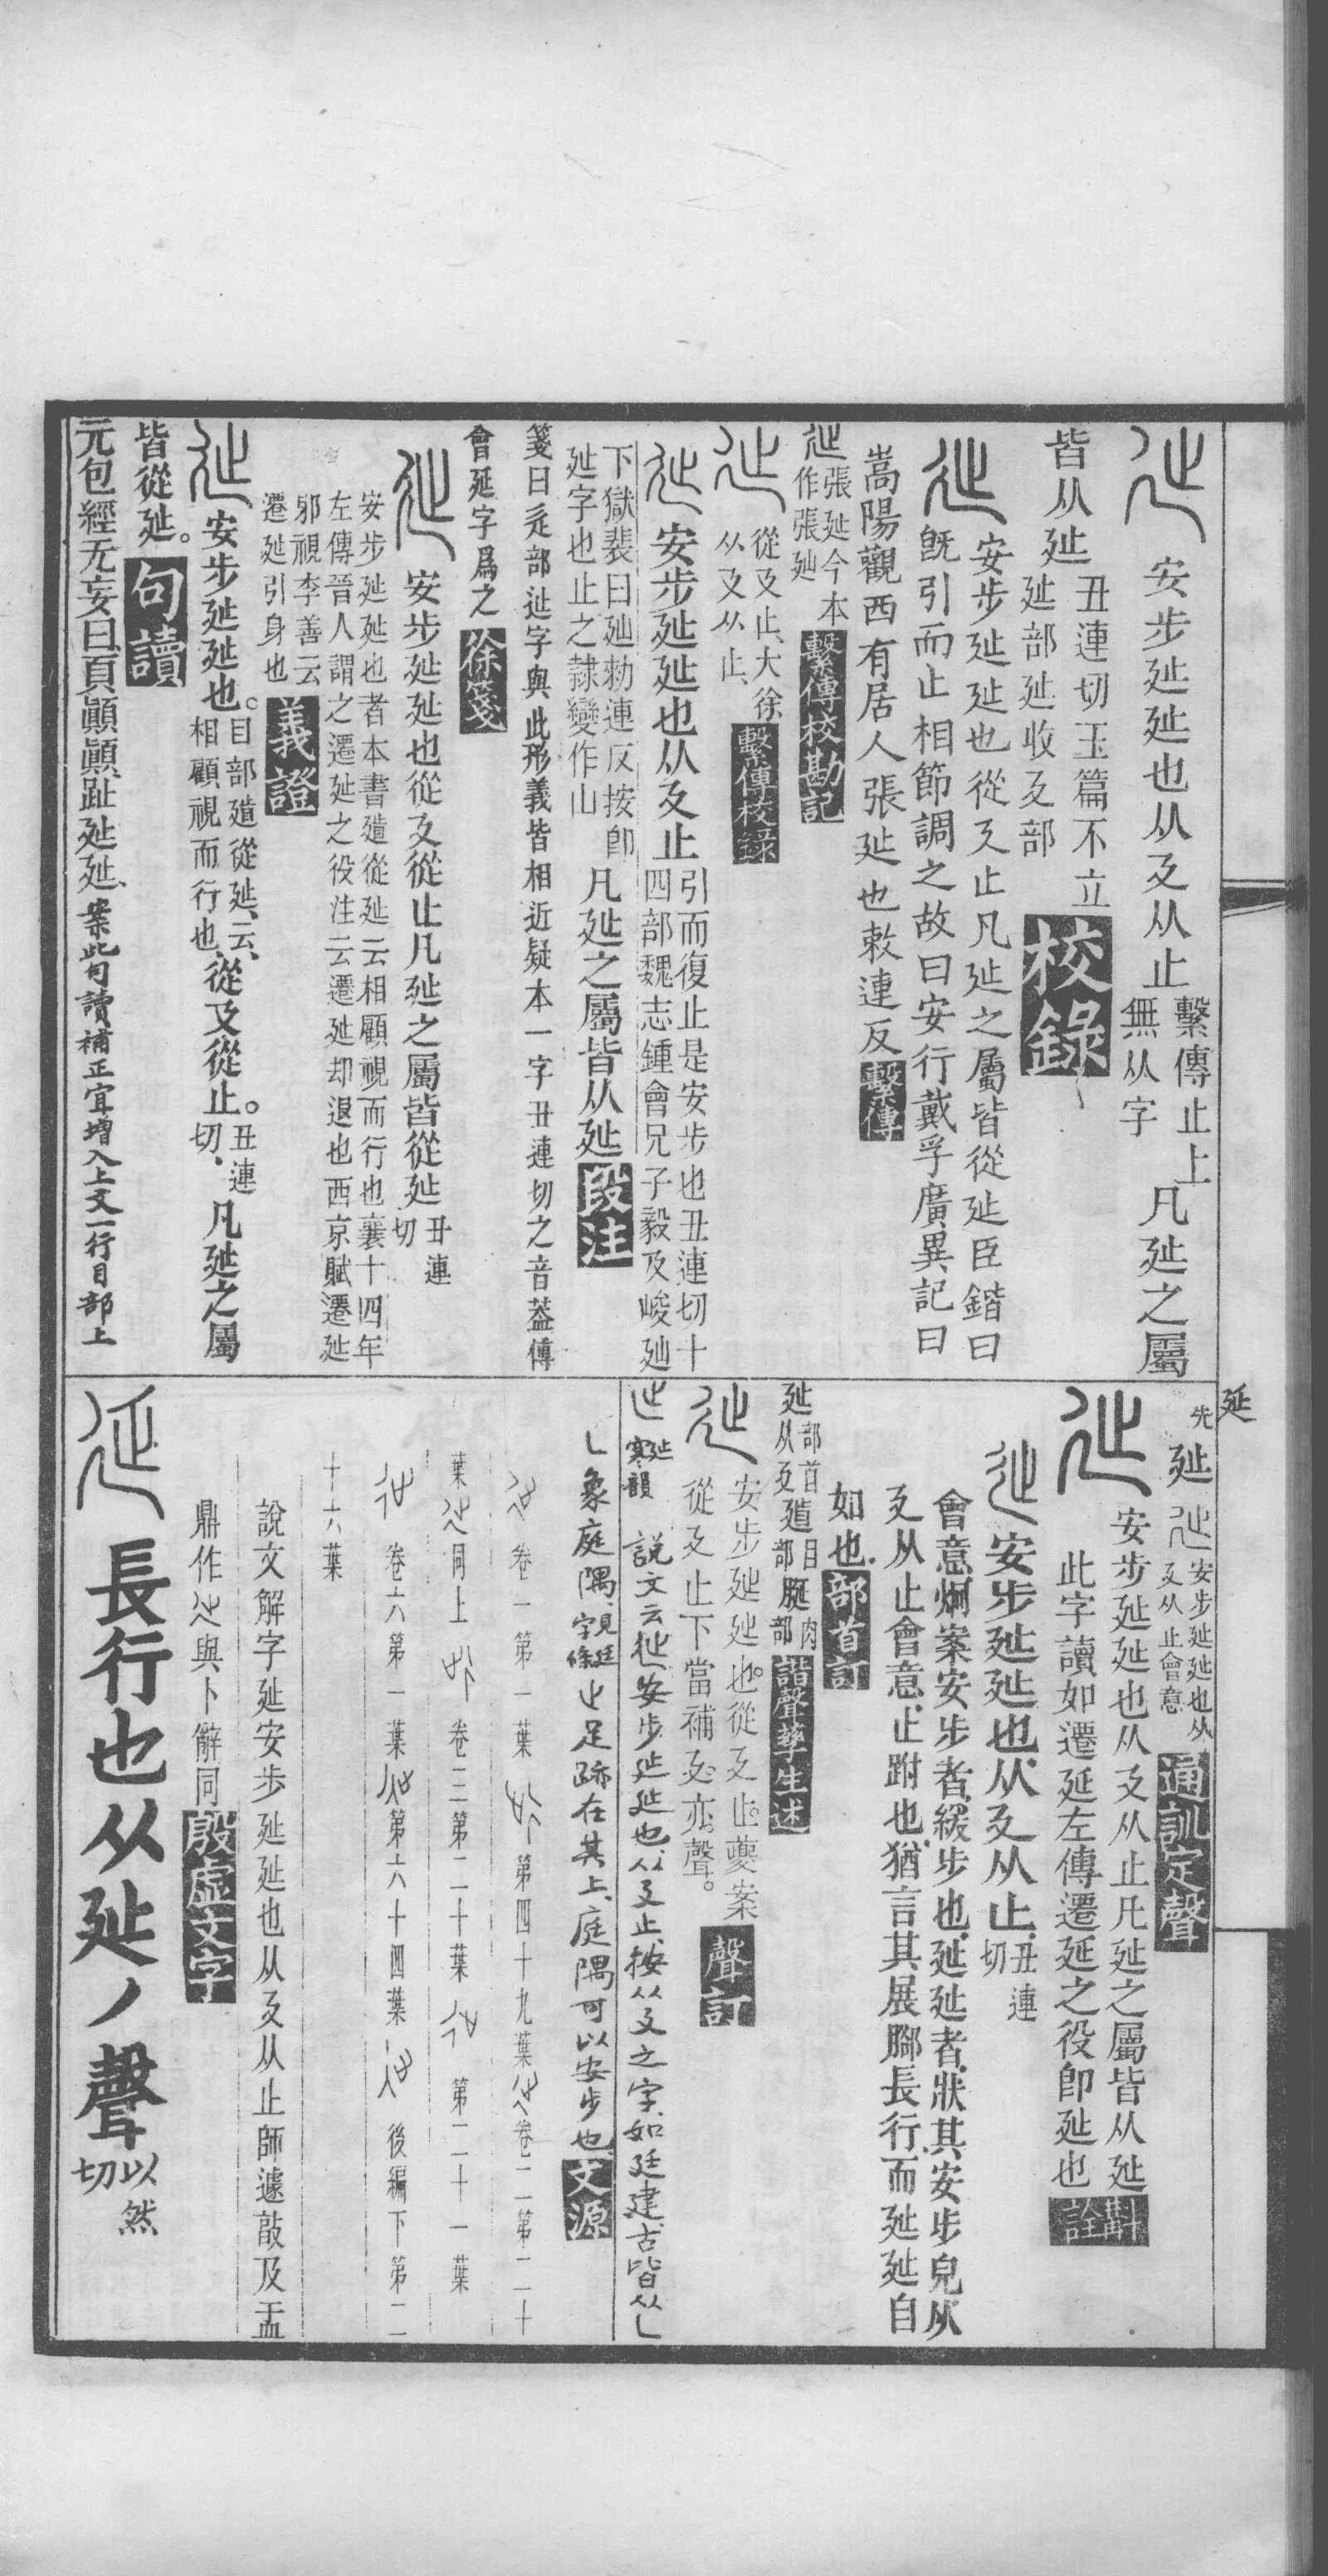 安步㢟㢟也从廴从止繫傳止上無从字凡㢟之屬
皆从㢟丑連切玉篇不立㢟部㢟收廴部校錄
安步㢟㢟也從廴止凡㢟之屬皆從㢟臣鍇曰
旣引而止相節調之故曰安行戴孚廣異記曰
嵩陽觀西有居人張㢟也敕連反繫傳
張㢟今本作張𨑨繫傳校勘記
從廴止大徐从廴从止繫傳校錄
安步㢟㢟也从廴止引而復止是安步也丑連切十四部魏志鍾會兄子毅及峻𨑨
下獄裴曰𨑨勑連反按卽㢟字也止之隸變作山凡㢟之屬皆从㢟段注
箋曰辵部𨑭字與此形義皆相近疑本一字丑連切之音葢傅
會延字爲之徐箋
安步㢟㢟也從廴從止凡㢟之屬皆從㢟丑連切
安步㢟㢟也者本書𥆛從㢟云相顧視而行也襄十四年
左傳晉人謂之遷延之役注云遷延却退也西京賦遷延
邪視李善云遷延引身也義證
安步㢟㢟也。目部𥆛從㢟、云、相顧視而行也從廴從止。丑連切、凡㢟之屬
皆從㢟。句讀
元包經无妄曰、頁顚顚、趾㢟㢟、案此句讀補正宜增入上文一行目部上
㢟
先
㢟安步㢟㢟也从廴从止會意通訓定聲
安步㢟㢟也从廴从止凡㢟之屬皆从㢟
此字讀如遷延左傳遷延之役卽㢟也斠詮
安步㢟㢟也从廴从止丑連切
會意炯案安步者緩步也㢟㢟者狀其安步皃从
廴从止會意止跗也猶言其展腳長行而㢟㢟自
如也部首訂
㢟部首从廴𥆛目部脠肉部諧聲孳生述
安步㢟㢟也。從廴止。夔案
從廴止下當補廴亦聲。聲訂
㢟寒韻說文云㢟安步㢟㢟也从廴止、按从廴之字、如廷建、古皆从乚
乚象庭隅、見廷字條止足跡在其上、庭隅可以安步也文源
卷一第一葉第四十九葉卷二第二十
葉同上卷三第二十葉第二十一葉
卷六第一葉第六十四葉後編下第二
十六葉
說文解字㢟安步㢟㢟也从廴从止師遽敲及盂
鼎作與卜辭同殷虛文字
長行也从㢟丿聲以然切